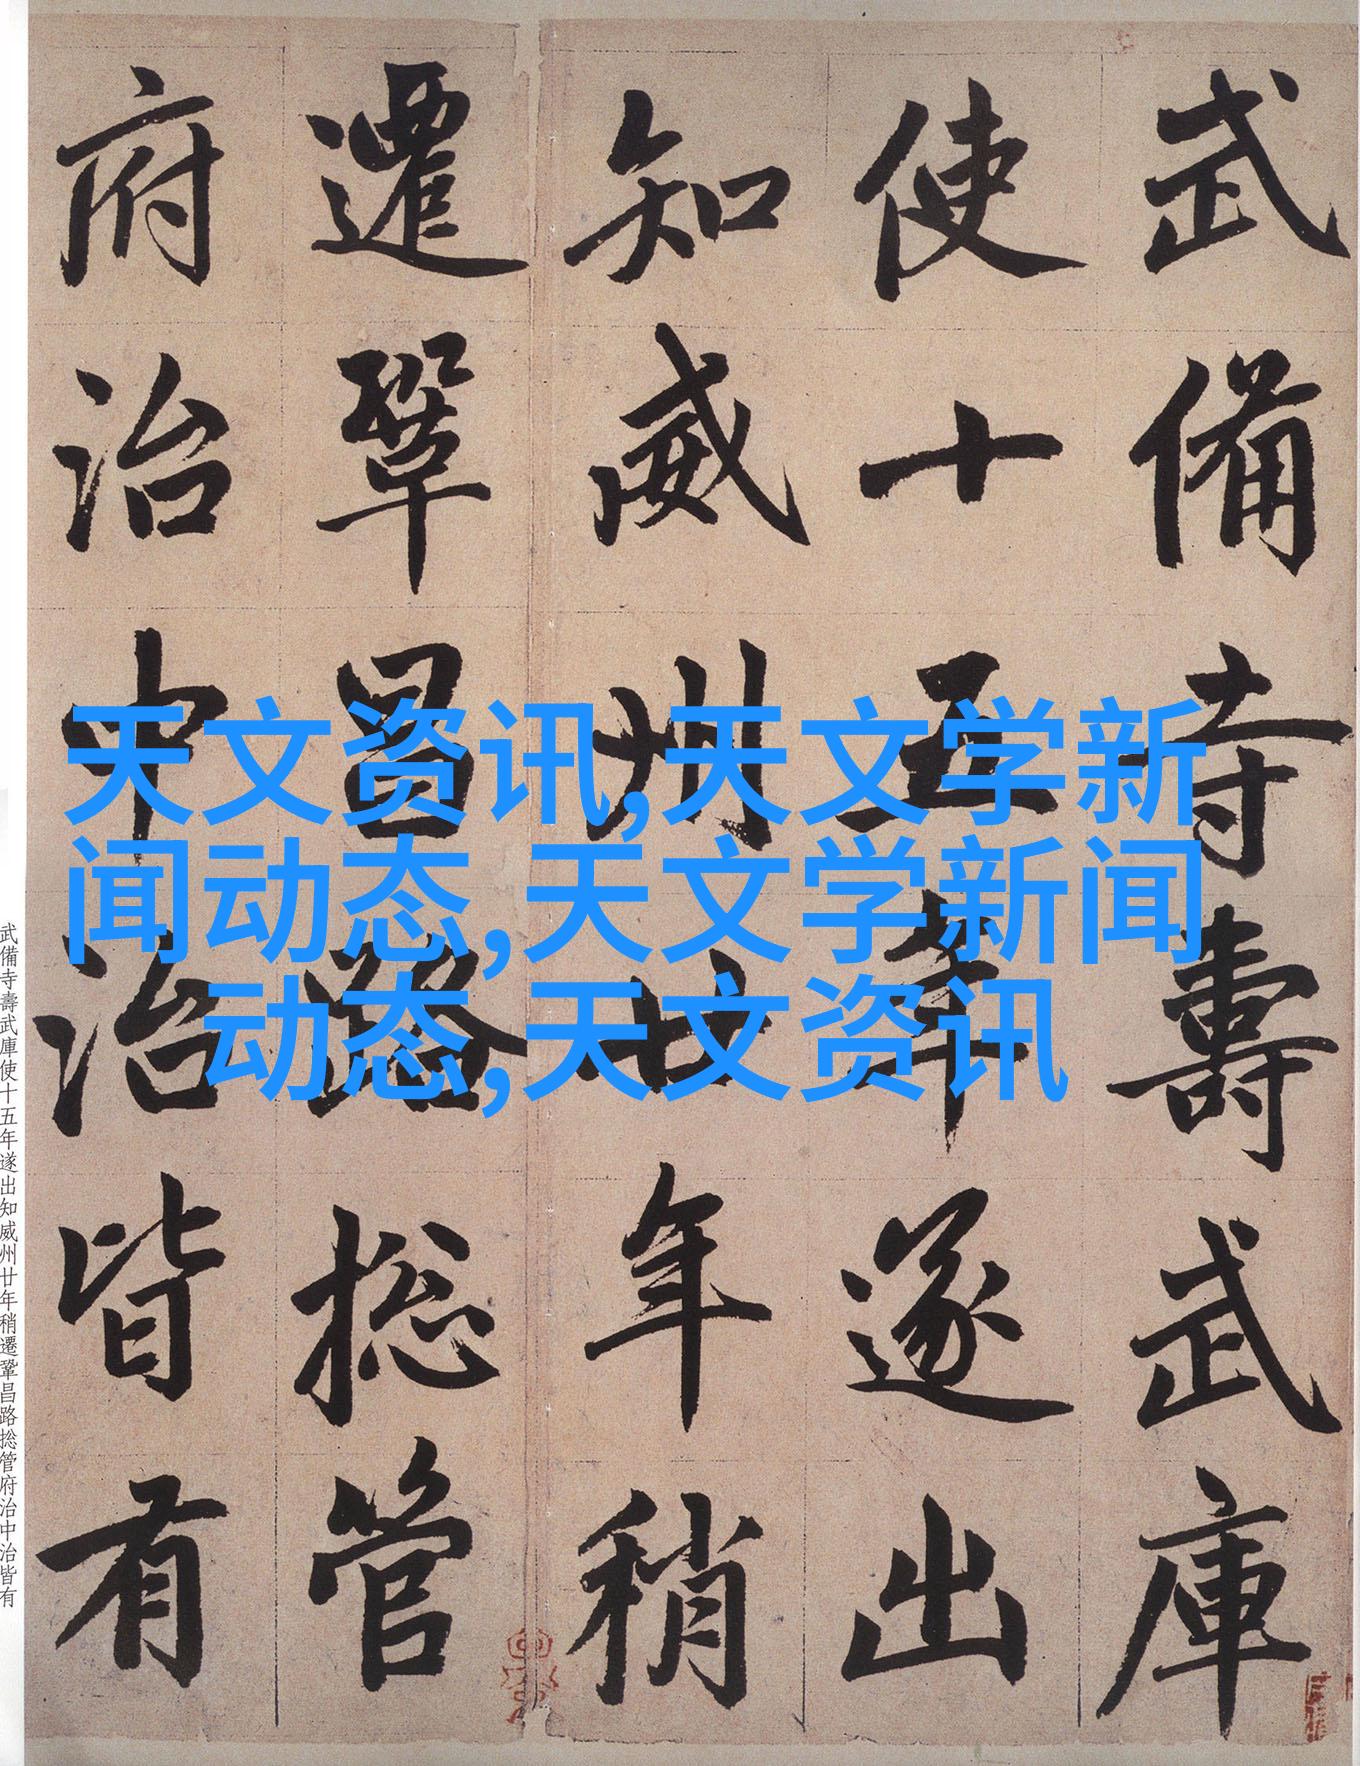 武備寺壽武庫
使十五年遂出
知威州廿年稍
遷鞏昌路捴管
府治中治皆有
天文资讯,天文学新
闻动态,天文学新闻
动态,天文资讯
武備寺壽武庫使十五年遂出知威州廿年稍遷鞏昌路捴管府治中治皆有